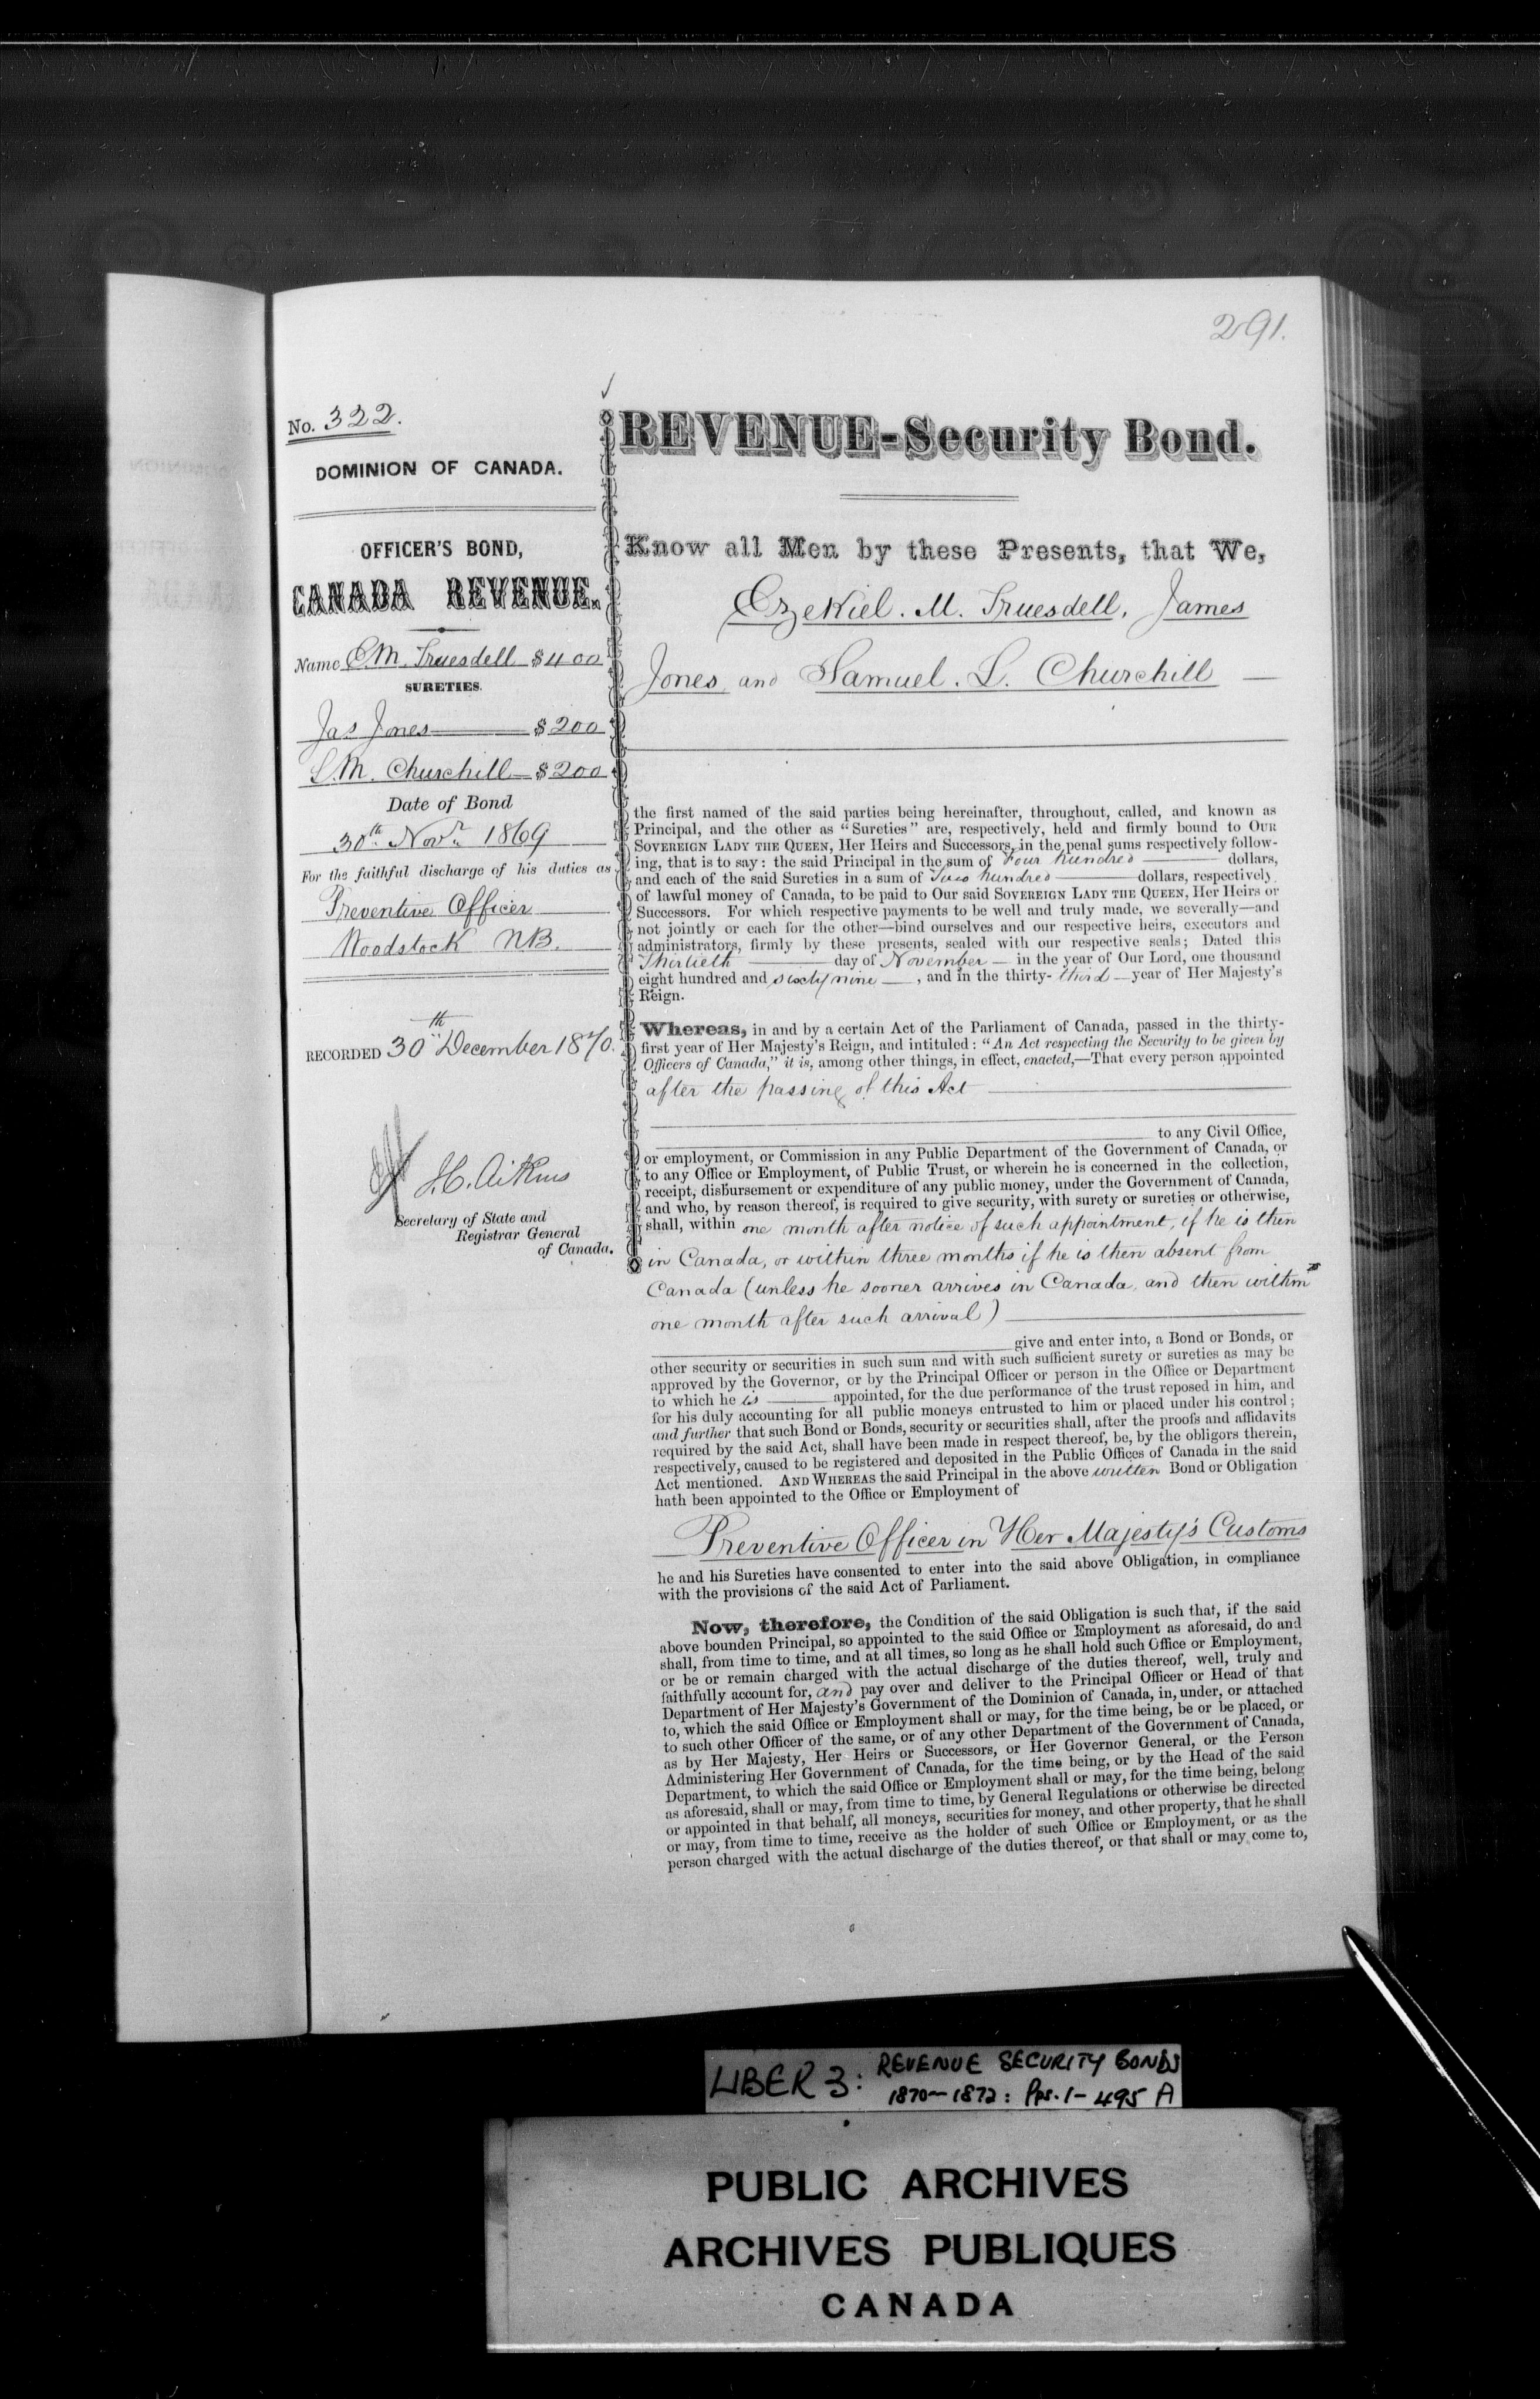 291.
No. 322.
DOMINION OF CANADA.
OFFICER'S BOND,
CANADA REVENUE.
Name E.M. Truesdell $400
SURETIES.
Jas Jones $200
S.M. Churchill $200
Date of Bond
30th Novr. 1869
For the faithful discharge of his duties as
Preventive Officer
Woodstock NB.
RECORDED 30th December 1870.
J.C. Aikins
Secretary of State and
Registrar General
of Canada.
REVENUE-Security Bond.
Know all Men by these Presents, that We,
Ezekiel. M. Truesdell, James
Jones, and Samuel. L. Churchill
the first named of the said parties being hereinafter, throughout, called, and known as
Principal, and the other as "Sureties" are, respectively, held and firmly bound to OUR
SOVEREIGN LADY THE QUEEN, Her Heirs and Successors, in the penal sums respectively follow-
ing, that is to say: the said Principal in the sum of Four hundred dollars,
and each of the said Sureties in a sum of Two hundred dollars, respectively
of lawful money of Canada, to be paid to Our said SOVEREIGN LADY THE QUEEN, Her Heirs or
Successors. For which respective payments to be well and truly made, we severally—and
not jointly or each for the other—bind ourselves and our respective heirs, executors and
administrators, firmly by these presents, sealed with our respective seals; Dated this
Thirtieth day of November in the year of Our Lord, one thousand
eight hundred and sixty nine, and in the thirty-third year of Her Majesty's
Reign.
Whereas, in and by a certain Act of the Parliament of Canada, passed in the thirty-
first year of Her Majesty's Reign, and intituled: "An Act respecting the Security to be given by
Officers of Canada," it is, among other things, in effect, enacted,—That every person appointed
after the passing of this Act
to any Civil Office,
or employment, or Commission in any Public Department of the Government of Canada, or
to any Office or Employment, of Public Trust, or wherein he is concerned in the collection,
receipt, disbursement or expenditure of any public money, under the Government of Canada,
and who, by reason thereof, is required to give security, with surety or sureties or otherwise,
shall, within one month after notice of such appointment, if he is then
in Canada, or within three months if he is then absent from
Canada (unless he sooner arrives in Canada, and then within
one month after such arrival)
give and enter into, a Bond or Bonds, or
other security or securities in such sum and with such sufficient surety or sureties as may be
approved by the Governor, or by the Principal Officer or person in the Office or Department
to which he is appointed, for the due performance of the trust reposed in him, and
for his duly accounting for all public moneys entrusted to him or placed under his control;
and further that such Bond or Bonds, security or securities shall, after the proofs and affidavits
required by the said Act, shall have been made in respect thereof, be, by the obligors therein,
respectively, caused to be registered and deposited in the Public Offices of Canada in the said
Act mentioned. AND WHEREAS the said Principal in the above written Bond or Obligation
hath been appointed to the Office or Employment of
Preventive Officer in Her Majesty's Customs
he and his Sureties have consented to enter into the said above Obligation, in compliance
with the provisions of the said Act of Parliament.
Now, therefore, the Condition of the said Obligation is such that, if the said
above bounden Principal, so appointed to the said Office or Employment as aforesaid, do and
shall, from time to time, and at all times, so long as he shall hold such Office or Employment,
or be or remain charged with the actual discharge of the duties thereof, well, truly and
faithfully account for, and pay over and deliver to the Principal Officer or Head of that
Department of Her Majesty's Government of the Dominion of Canada, in, under, or attached
to, which the said Office or Employment shall or may, for the time being, be or be placed, or
to such other Officer of the same, or of any other Department of the Government of Canada,
as by Her Majesty, Her Heirs or Successors, or Her Governor General, or the Person
Administering Her Government of Canada, for the time being, or by the Head of the said
Department, to which the said Office or Employment shall or may, for the time being, belong
as aforesaid, shall or may, from time to time, by General Regulations or otherwise be directed
or appointed in that behalf, all moneys, securities for money, and other property, that he shall
or may, from time to time, receive as the holder of such Office or Employment, or as the
person charged with the actual discharge of the duties thereof, or that shall or may come to,
LIBER 3: REVENUE SECURITY BONDS
1870-1872: Pps. 1-495 A
PUBLIC ARCHIVES
ARCHIVES PUBLIQUES
CANADA